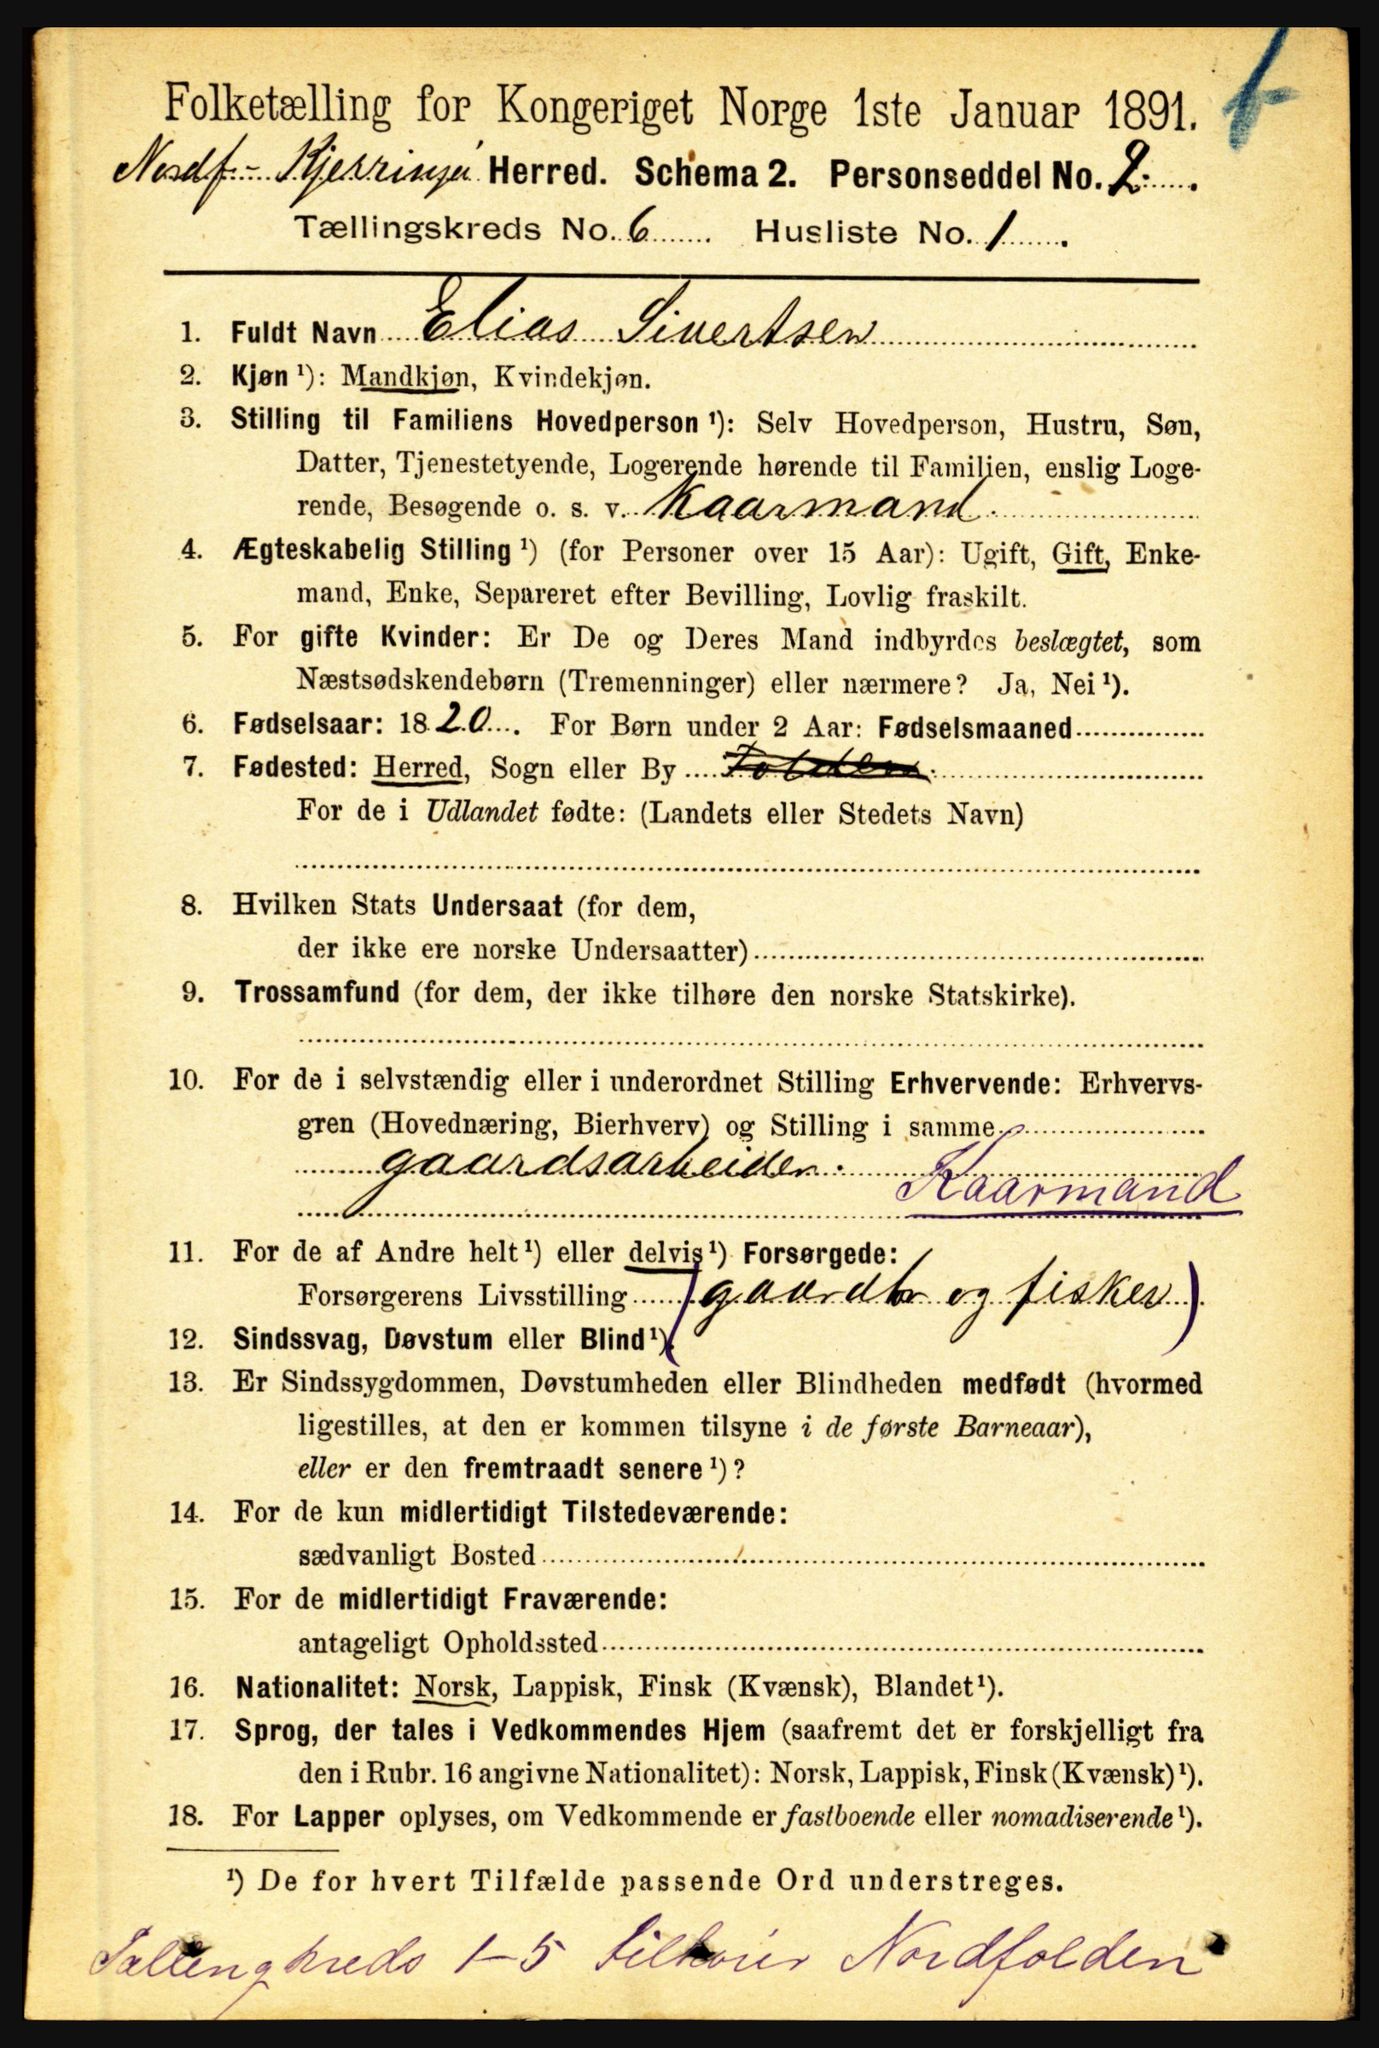 Folketælling for Kongeriget Norge 1ste Januar 1891.
Nordf.- Kjerringø Herred. Schema 2. Personseddel No. 2.
Tællingskreds No. 6 Husliste No. 1.
1. Fuldt Navn Elias Sivertsen
2. Kjøn ¹): Mandkjøn, Kvindekjøn.
3. Stilling til Familiens Hovedperson ¹): Selv Hovedperson, Hustru, Søn,
Datter, Tjenestetyende, Logerende hørende til Familien, enslig Loge-
rende, Besøgende o. s. v. Kaarmand.
4. Ægteskabelig Stilling ¹) (for Personer over 15 Aar): Ugift, Gift, Enke-
mand, Enke, Separeret efter Bevilling, Lovlig fraskilt.
5. For gifte Kvinder: Er De og Deres Mand indbyrdes beslægtet, som
Næstsødskendebørn (Tremenninger) eller nærmere? Ja, Nei ¹).
6. Fødselsaar: 1820. For Børn under 2 Aar: Fødselsmaaned
7. Fødested: Herred, Sogn eller By Folden.
For de i Udlandet fødte: (Landets eller Stedets Navn)
8. Hvilken Stats Undersaat (for dem,
der ikke ere norske Undersaatter)
9. Trossamfund (for dem, der ikke tilhøre den norske Statskirke).
10. For de i selvstændig eller i underordnet Stilling Erhvervende: Erhvervs-
gren (Hovednæring, Bierhverv) og Stilling i samme
gaardsarbeider. Kaarmand
11. For de af Andre helt ¹) eller delvis ¹) Forsørgede:
Forsørgerens Livsstilling (gaardbr og fisker)
12. Sindssvag, Døvstum eller Blind ¹).
13. Er Sindssygdommen, Døvstumheden eller Blindheden medfødt (hvormed
ligestilles, at den er kommen tilsyne i de første Barneaar),
eller er den fremtraadt senere ¹)?
14. For de kun midlertidigt Tilstedeværende:
sædvanligt Bosted
15. For de midlertidigt Fraværende:
antageligt Opholdssted
16. Nationalitet: Norsk, Lappisk, Finsk (Kvænsk), Blandet ¹).
17. Sprog, der tales i Vedkommendes Hjem (saafremt det er forskjelligt fra
den i Rubr. 16 angivne Nationalitet): Norsk, Lappisk, Finsk (Kvænsk) ¹).
18. For Lapper oplyses, om Vedkommende er fastboende eller nomadiserende ¹).
¹) De for hvert Tilfælde passende Ord understreges.
Tællingkreds 1-5 tilhører Nordfolden